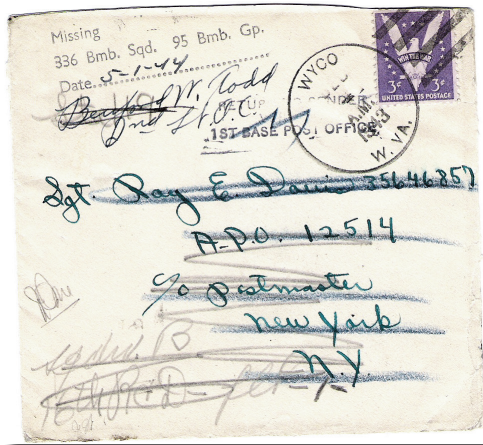 Missing
336 Bmb. Sqd. 95 Bmb. Gp.
Date 5-1-44
W. Todd
2nd Lt. A.C.
RETURN SENDER
1ST BASE POST OFFICE
WYCO
A.M.
1943
W. VA.
WIN THE WAR
3¢ 3¢
UNITED STATES POSTAGE
Sgt. Roy E Davis 35646857
A.P.O. 12514
c/o Postmaster
New York
N.Y.